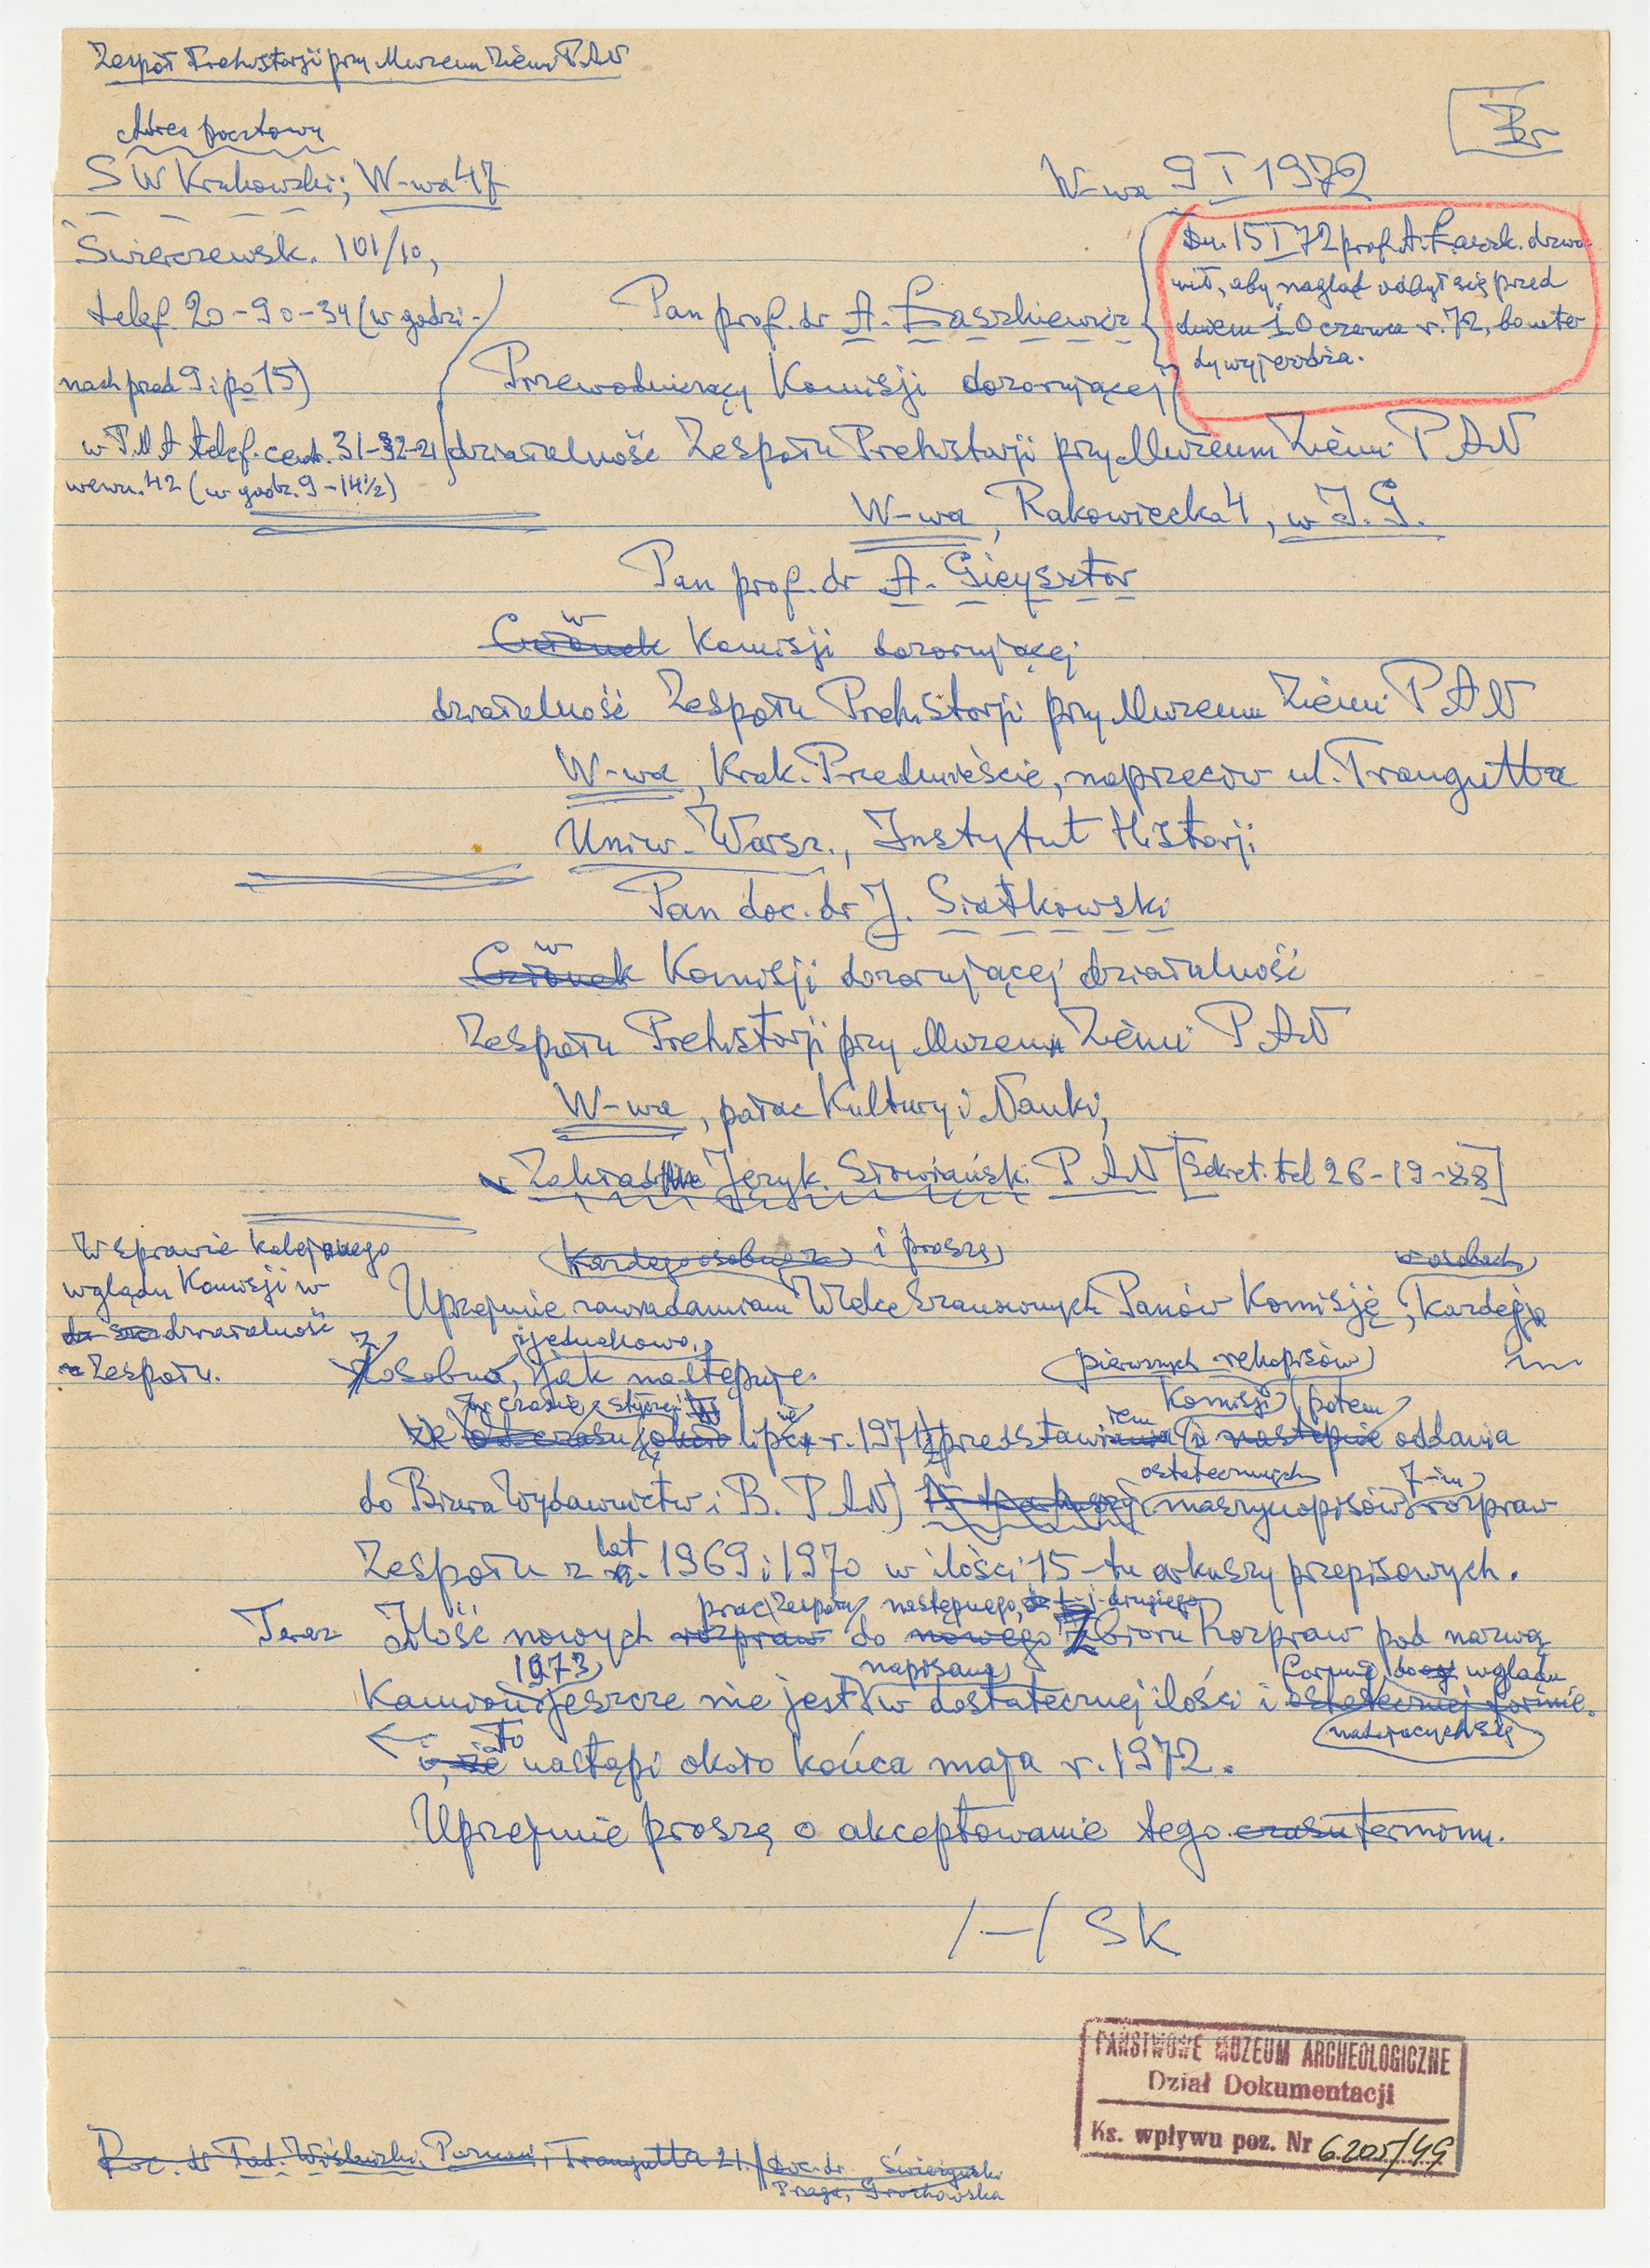 Zespół Prehistorji przy Muzeum Ziemi PAN
Br
Adres pocztowy
S W Krukowski; W-wa 47
W-wa 9 I 1972
Świerczewsk. 101/10,
telef. 20-90-34 (w godzi-
nach przed 9 i po 15)
w P.M.A telef. centr. 31-32-21
wewn. 42 (w godz. 9-14½)
Dn. 15 I 72 prof. A. Łaszk. dzwo-
nił, aby nagląd odbył się przed
dniem 10 czerwca r. 72, bo wte-
dy wyjeżdża.
Pan prof. dr A. Łaszkiewicz
Przewodniczący Komisji dozorującej
działalność Zespołu Prehistorji przy Muzeum Ziemi PAN
W-wa, Rakowiecka 4, w I. G.
Pan prof. dr A. Gieysztor
w
Członek Komisji dozorującej
działalność Zespołu Prehistorji przy Muzeum Ziemi PAN
W-wa, Krak. Przedmieście, naprzeciw ul. Traugutta
Uniw. Warsz., Instytut Historji
Pan doc. dr J. Siatkowski
w
Członek Komisji dozorującej działalność
Zespołu Prehistorji przy Muzeum Ziemi PAN
W-wa, pałac Kultury i Nauki,
w Zakładzie Język. Słowiańsk. PAN [Sekret. tel 26-19-88]
W sprawie kolejnego
wglądu Komisji w
działalność
Zespołu.
każdego osobno z i proszę
w osobach
Uprzejmie zawiadamiam Wielce Szanownych Panów Komisję, każdego
z osobna, i jednakowo, jak następuje.
pierwszych rękopisów
w czasie styczeń
Komisji potem
że od czasu około lipca r. 1971 przedstawieniem i następnie oddania
ostatecznych 7-iu
do Biura Wydawnictw i B. PAN) maszynopisów rozpraw
lat
Zespołu z r. 1969 i 1970 w ilości 15-tu arkuszy przepisowych.
prac Zespołu następnego, t.j. drugiego
Teraz Ilość nowych rozpraw do nowego Zbioru Rozpraw pod nazwą
1973 napisana formie do wglądu
Kamion jeszcze nie jest w dostatecznej ilości i ostatecznej formie.
nadającej się
To
i, że nastąpi około końca maja r. 1972.
Uprzejmie proszę o akceptowanie tego czasu terminu.
/-/ SK
PAŃSTWOWE MUZEUM ARCHEOLOGICZNE
Dział Dokumentacji
Ks. wpływu poz. Nr 6205/49
Doc. dr Tad. Wiślański, Poznań, Traugutta 21. / doc. dr
Praga, Grochowska